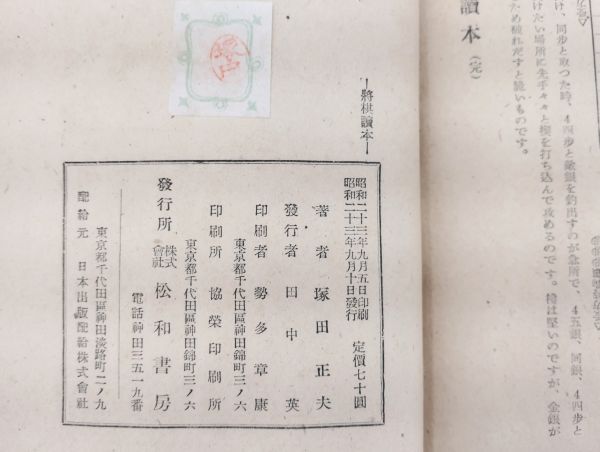 讀本 (完)
け、同步と取つた時、4四步と敵銀を釣出すのが急所で、4五銀、同銀、4四步と
けたい場所に先手々々と楔を打ち込んで攻めるのです。楔は堅いのですが、金銀が
ため破れだすと脆いものです。
將棋讀本
昭和二十三年九月五日印刷
昭和二十三年九月十日發行
定價七十圓
著者 塚田正夫
發行者 田中英
東京都千代田區神田錦町三ノ六
印刷者 勢多章康
東京都千代田區神田錦町三ノ六
印刷所 協榮印刷所
發行所 株式會社 松和書房
電話神田三五一九番
東京都千代田區神田淡路町二ノ九
配給元 日本出版配給株式會社